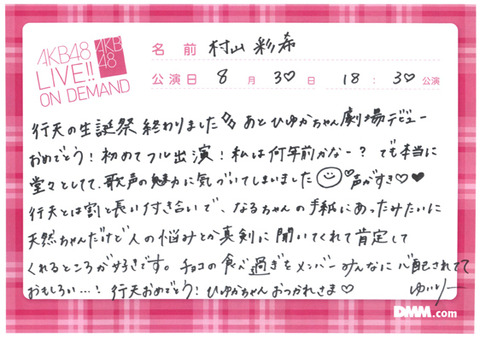 AKB48
LIVE!!
ON DEMAND
AKB
48
名前 村山彩希
公演日 8月30日 18:30公演
行天の生誕祭終わりました あとひゆかちゃん劇場デビュー
おめでとう!初めてフル出演!私は何年前かなー?でも本当に
堂々としてて、歌声の魅力に気づいてしまいました 声がすき♡♥
行天とは割と長い付き合いで、なるちゃんの手紙にあったみたいに
天然ちゃんだけど人の悩みとか真剣に聞いてくれて肯定して
くれるところが好きです。チョコの食べ過ぎをメンバーみんなに心配されてて
おもしろい…!行天おめでとう!ひゆかちゃんおつかれさま♡ ゆいりー
DMM.com